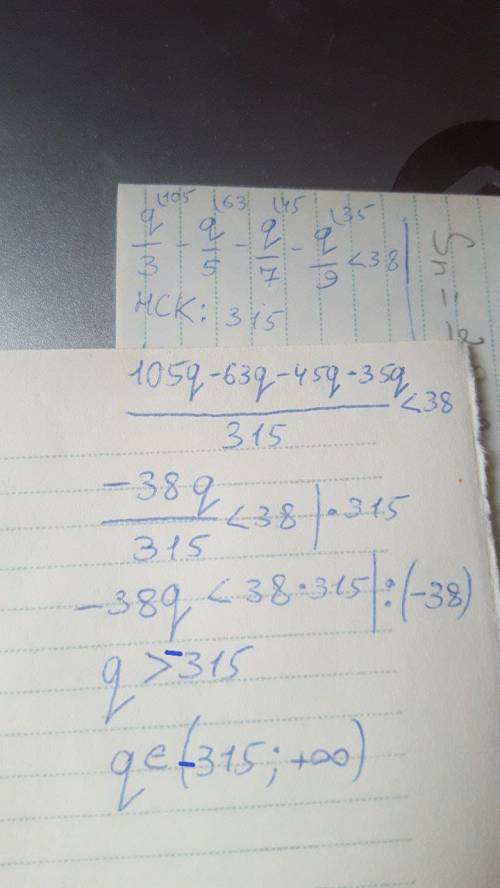 q/3 \105 - q/5 \63 - q/7 \45 - q/9 \35 < 38
НСК: 315
(105q - 63q - 45q - 35q)/315 < 38
-38q/315 < 38 | · 315
-38q < 38 · 315 | : (-38)
q > -315
q ∈ (-315; +∞)